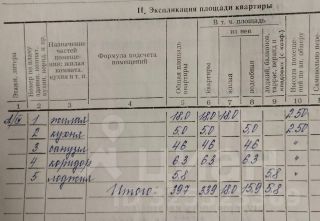 II. Экспликация площади квартиры
Этажи, литера
Номер по плану
Назначение частей помещения: жилая комната, кухня и т. п.
Формула подсчета помещений
В т. ч. площадь
из нее
Общая площадь квартиры
квартиры
жилая
подсобная
лоджий, балконов, террас, веранд и кладовых (с коэф.)
Высота помещений по вн. обмеру
1 2 3 4 5 6 7 8 9 10
1 жилая 18.0 18.0 18.0 2.50
2 кухня 5.0 5.0 5.0 2.50
3 санузел 4.6 4.6 4.6 "
4 коридор 6.3 6.3 6.3 "
5 лоджия 5.8 5.8 "
Итого: 39.7 33.9 18.0 15.9 5.8